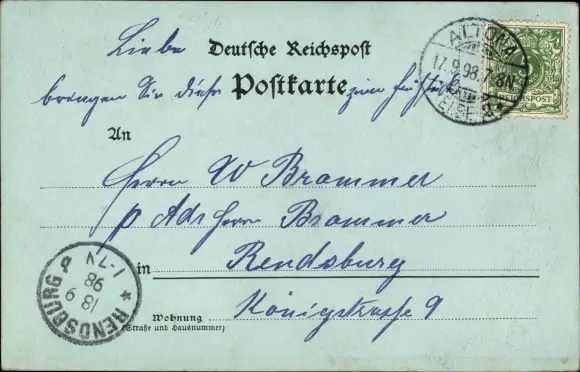 Liebe
Deutsche Reichspost
Postkarte
bringen Sie diese zum
ALTONA
17.9.98.7-8N
(ELBE)
REICHSPOST
An
Herrn W Brammer
p Adr Herrn Brammer
in Rendsburg
Wohnung
(Straße und Hausnummer)
Königstrasse 9
RENDSBURG
18 9
98